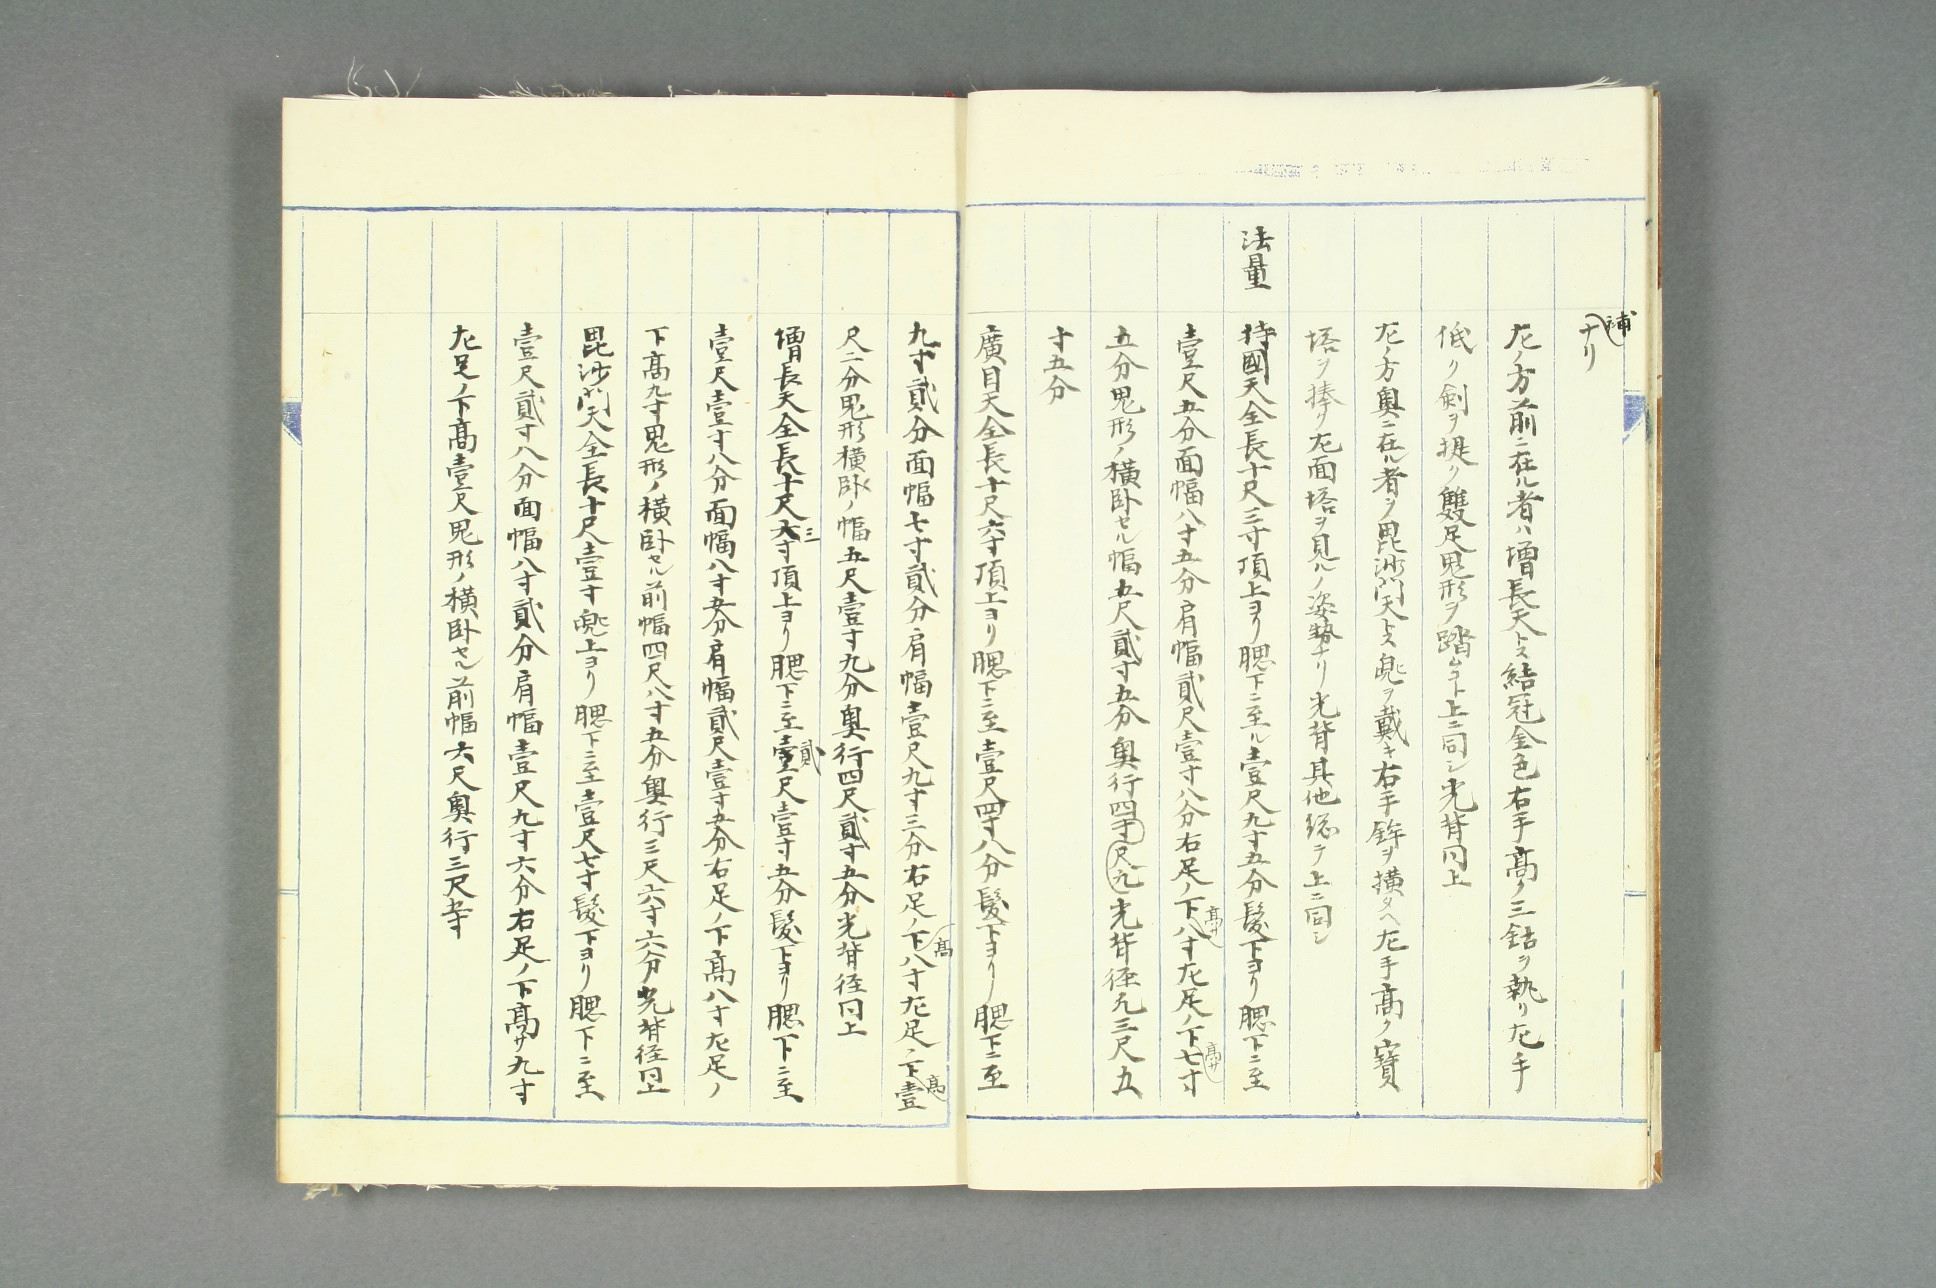 補ナリ
左ノ方前ニ在ル者ハ増長天トス結冠金色右手高ク三鈷ヲ執リ左手
低ク剣ヲ提ク雙足鬼形ヲ踏ムコト上ニ同シ光背同上
左ノ方奥ニ在ル者ヲ毘沙門天トス兜ヲ戴キ右手鉾ヲ横タヘ左手高ク寶
塔ヲ捧ク左面塔ヲ見ルノ姿勢ナリ光背其他総テ上ニ同シ
法量
持國天全長十尺三寸頂上ヨリ腮下ニ至ル壹尺九寸五分髪下ヨリ腮下ニ至
壹尺五分面幅八寸五分肩幅貳尺壹寸八分右足ノ下高サ八寸左足ノ下高サ七寸
五分鬼形ノ横臥セル幅五尺貳寸五分奥行四尺九寸光背径九三尺五
寸五分
廣目天全長十尺六寸頂上ヨリ腮下ニ至壹尺四寸八分髪下ヨリ腮下ニ至
九寸貳分面幅七寸貳分肩幅壹尺九寸三分右足ノ下高八寸左足ノ下高壹
尺二分鬼形横臥ノ幅五尺壹寸九分奥行四尺貳寸五分光背径同上
増長天全長十尺三寸頂上ヨリ腮下ニ至貳尺壹寸五分髪下ヨリ腮下ニ至
壹尺壹寸八分面幅八寸五分肩幅貳尺壹寸五分右足ノ下高八寸左足ノ
下高九寸鬼形ノ横臥セル前幅四尺八寸五分奥行三尺六寸六分光背径同上
毘沙門天全長十尺壹寸兜上ヨリ腮下ニ至壹尺七寸髪下ヨリ腮下ニ至
壹尺貳寸八分面幅八寸貳分肩幅壹尺九寸六分右足ノ下高サ九寸
左足ノ下高壹尺鬼形ノ横臥セル前幅六尺奥行三尺